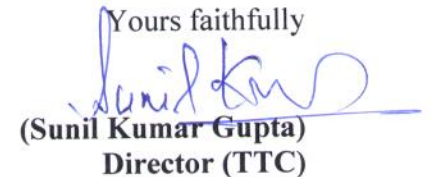 Yours faithfully
Sunil Kum
(Sunil Kumar Gupta)
Director (TTC)